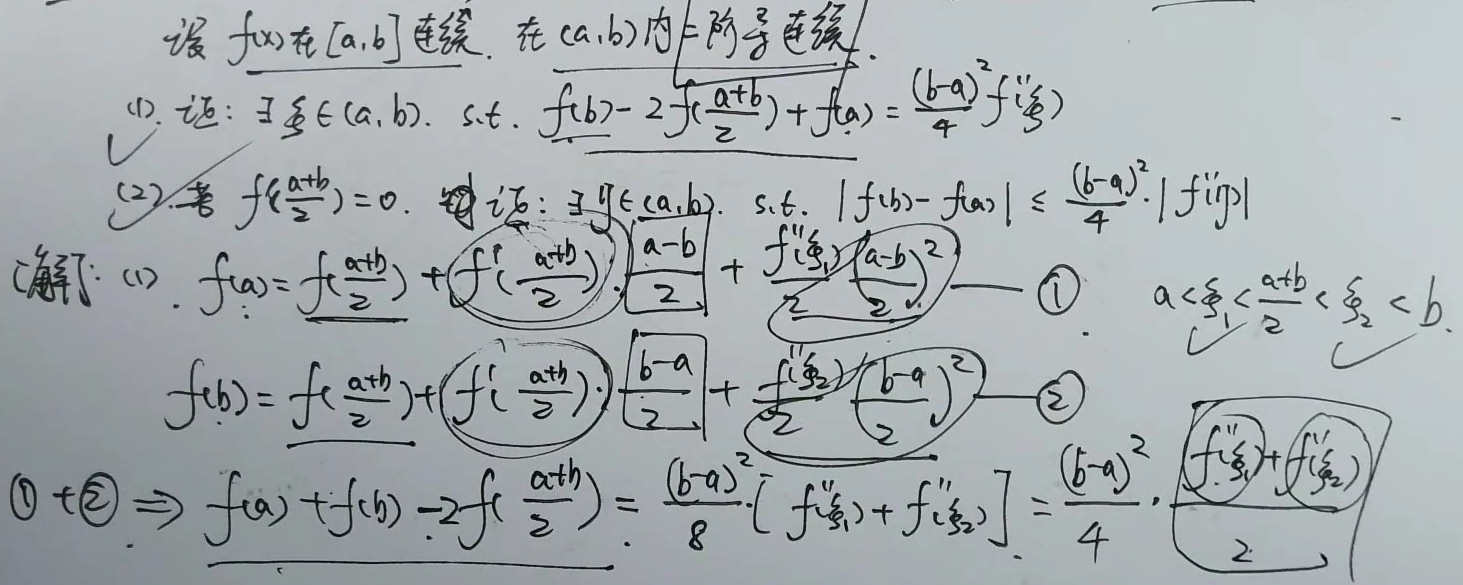 设 f(x)在[a,b]连续. 在(a,b)内二阶导连续.
(1). 证: ∃ξ∈(a,b). s.t. f(b)-2f(\frac{a+b}{2})+f(a)=\frac{(b-a)^2}{4}f''(ξ)
(2). 若 f'(\frac{a+b}{2})=0. 证: ∃η∈(a,b). s.t. |f(b)-f(a)| ≤ \frac{(b-a)^2}{4}·|f''(η)|
[解]: (1). f(a)=f(\frac{a+b}{2})+f'(\frac{a+b}{2})·\frac{a-b}{2}+\frac{f''(ξ_1)}{2}(\frac{a-b}{2})^2 —— ① . a<ξ_1<\frac{a+b}{2}<ξ_2<b.
f(b)=f(\frac{a+b}{2})+f'(\frac{a+b}{2})·\frac{b-a}{2}+\frac{f''(ξ_2)}{2}(\frac{b-a}{2})^2 —— ②
①+② ⇒ f(a)+f(b)-2f(\frac{a+b}{2})=\frac{(b-a)^2}{8}·[f''(ξ_1)+f''(ξ_2)]=\frac{(b-a)^2}{4}·\frac{f''(ξ_1)+f''(ξ_2)}{2}